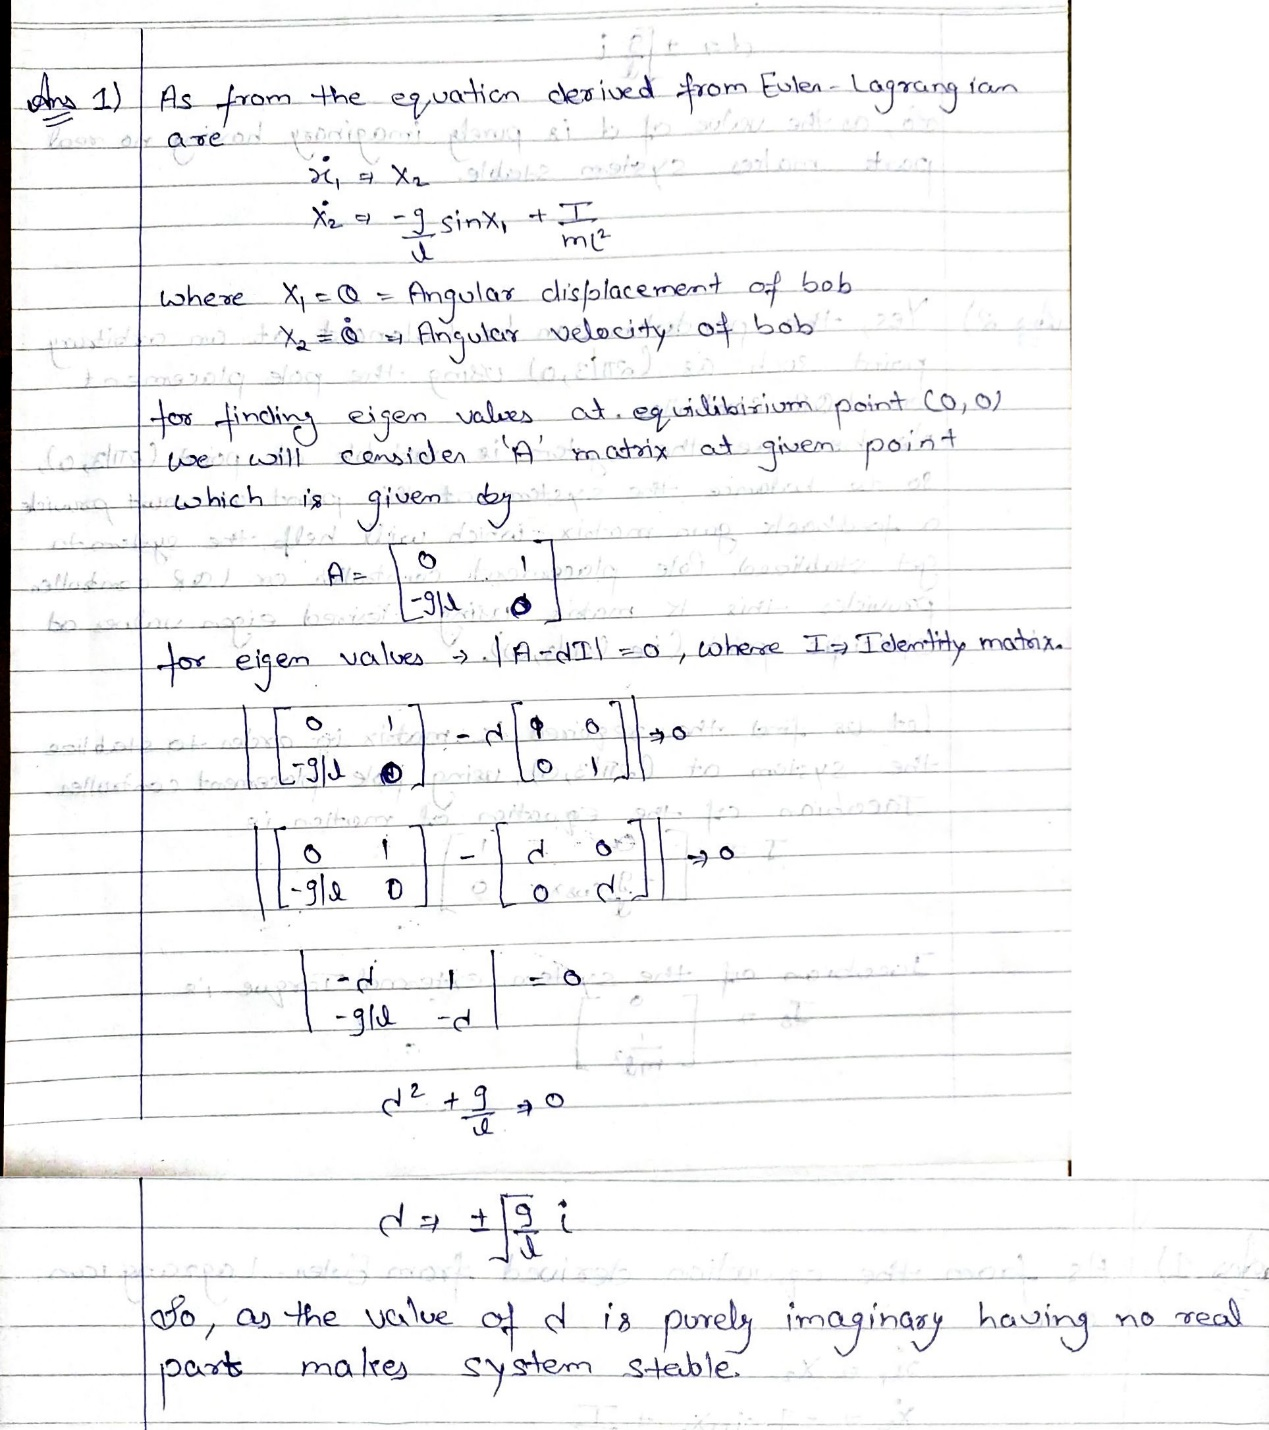 Ans 1) As from the equation derived from Euler-Lagrangian
are
ẋ₁ ⇒ x₂
ẋ₂ ⇒ -g/l sinx₁ + T/ml²
where x₁ = θ = Angular displacement of bob
x₂ = θ̇ ⇒ Angular velocity of bob
for finding eigen values at equilibirium point (0,0)
we will consider 'A' matrix at given point
which is given by
A = [0 1
-g/l 0]
for eigen values ⇒ |A-dI| = 0, where I ⇒ Identity matrix.
|[0 1] - d[1 0]| ⇒ 0
|[-g/l 0] [0 1]|
|[0 1] - [d 0]| ⇒ 0
|[-g/l 0] [0 d]|
|-d 1| = 0
|-g/l -d|
d² + g/l ⇒ 0
d ⇒ ±√g/l i
So, as the value of d is purely imaginary having no real
part makes system stable.